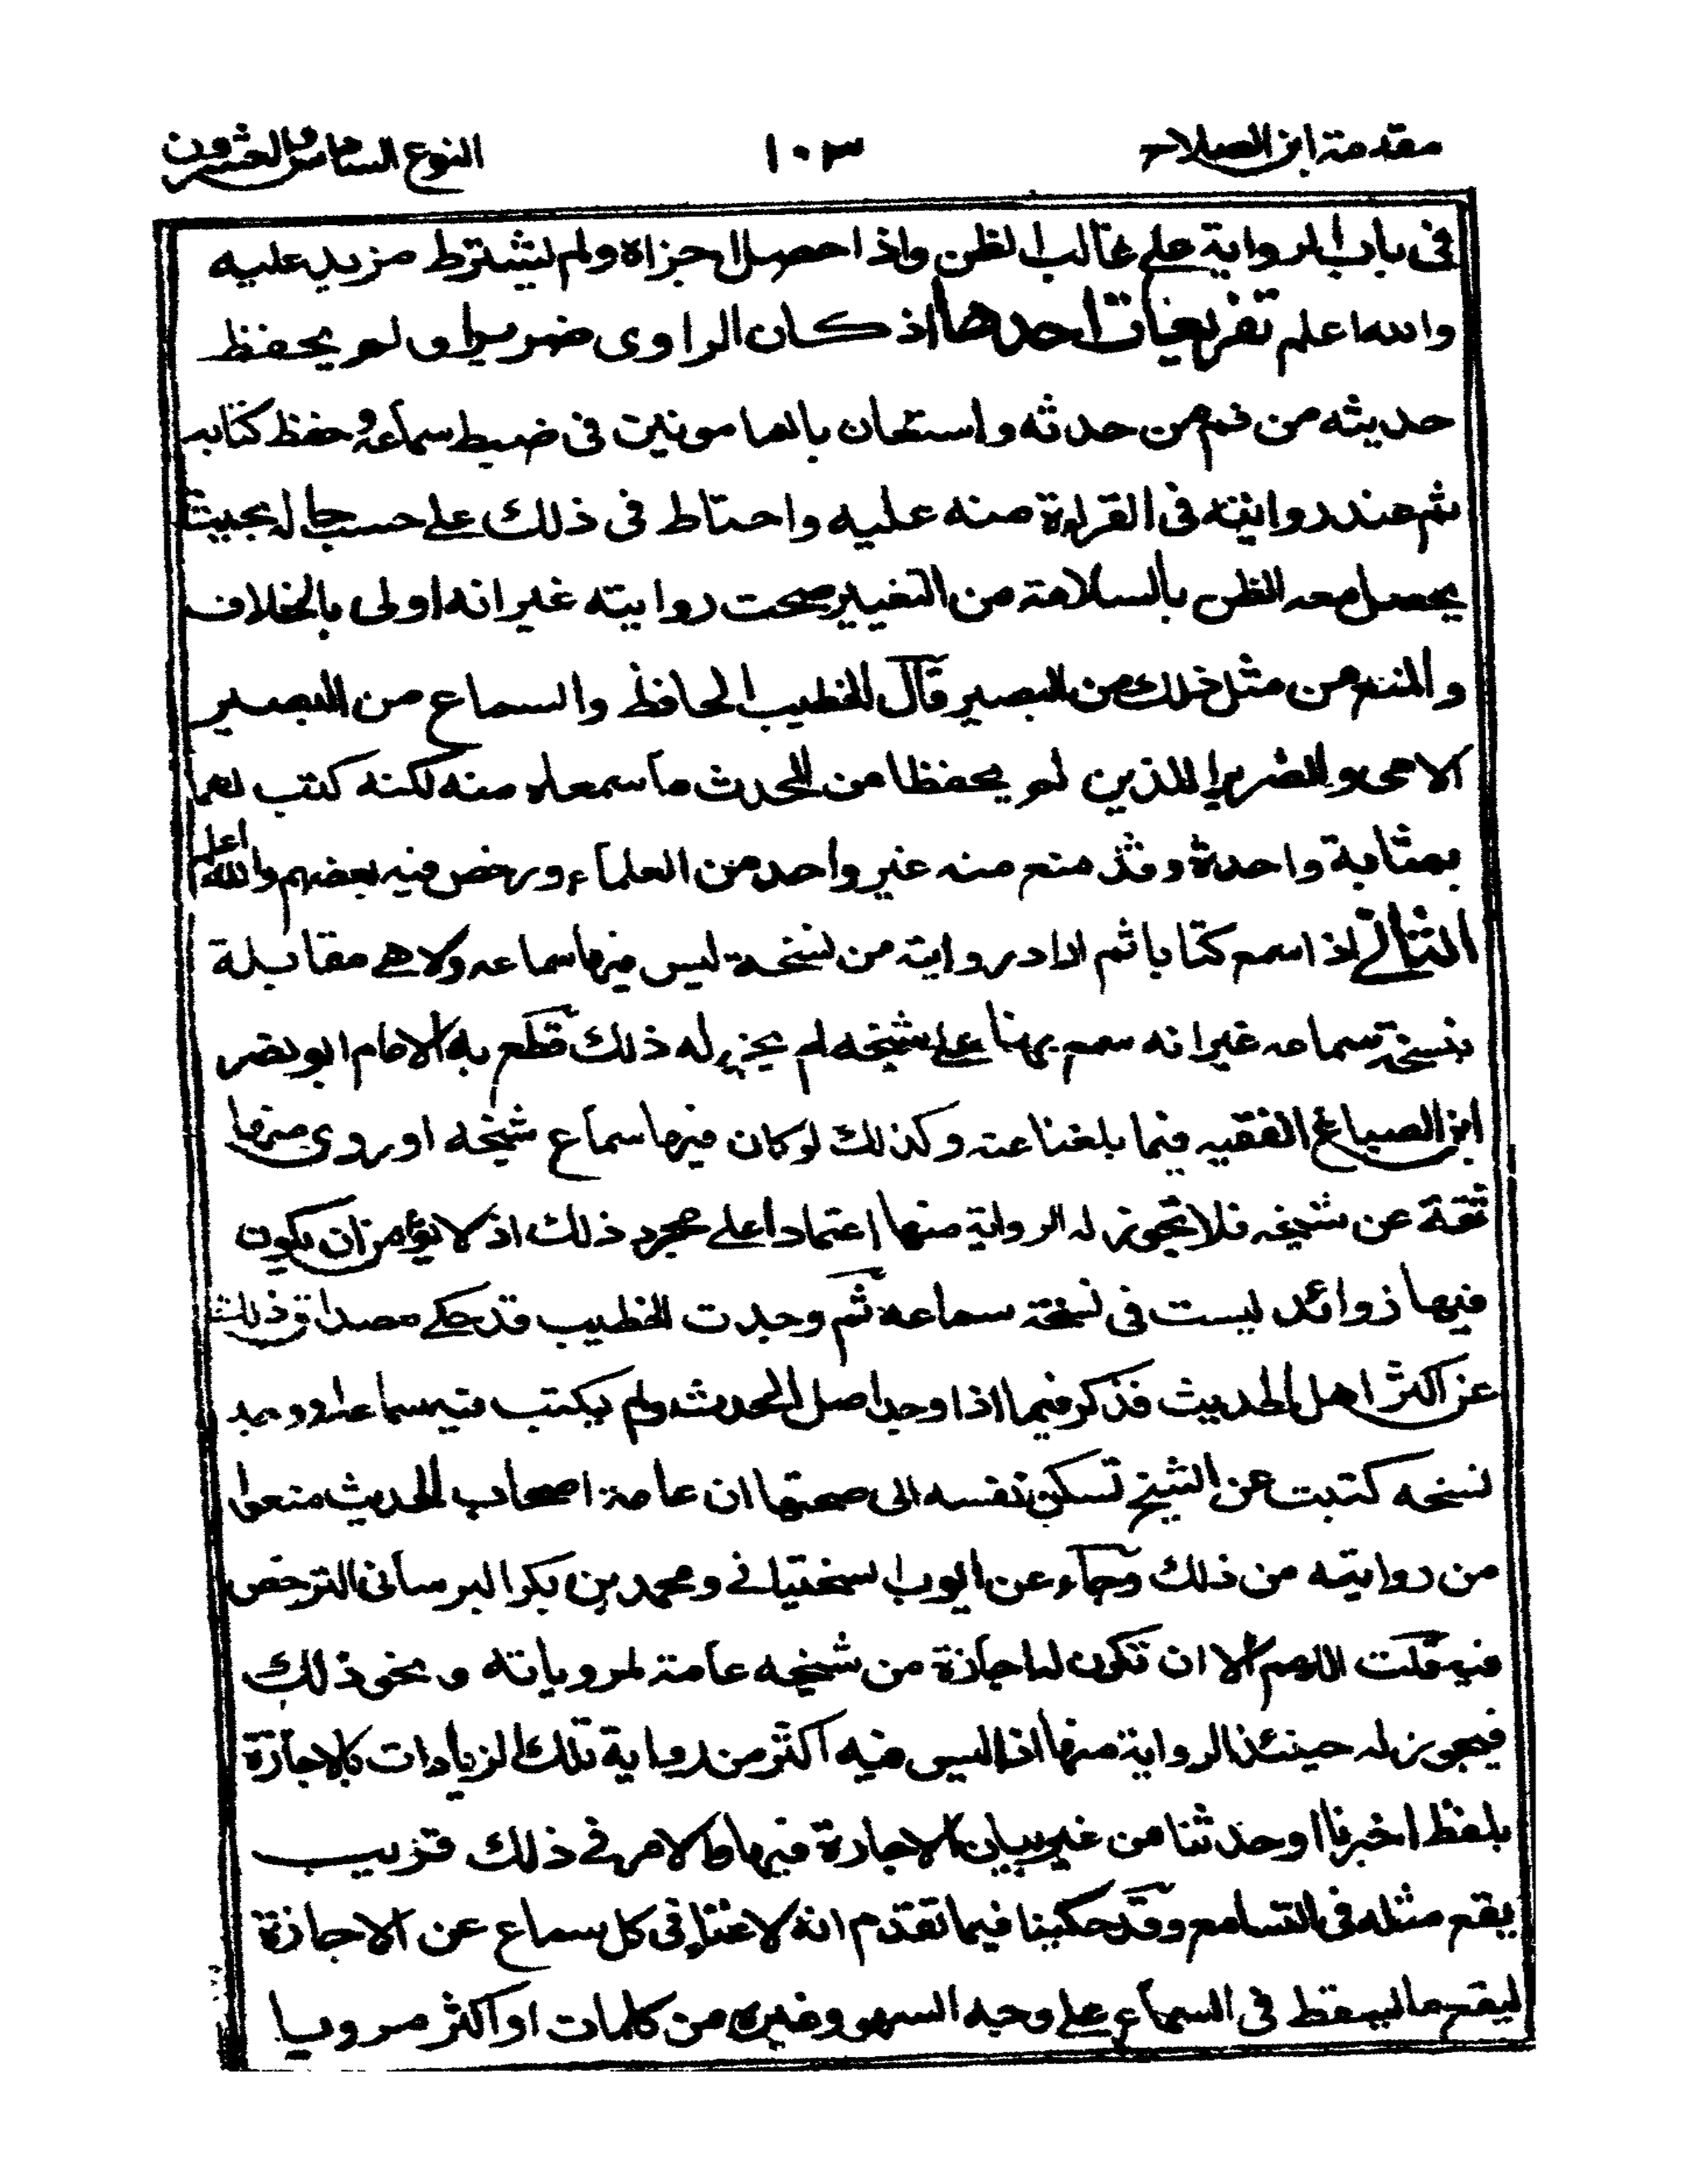 مقدمة ابن الصلاح ١٠٣ النوع السادس والعشرون
فى باب الرواية على غالب الظن واذا حصل اجزاه ولم يشترط مزيد عليه
والله اعلم تفريعات احدها اذ كان الراوى ضريرا ولم يحفظ
حديثه من فم من حدثه واستعان بالمامونين فى ضبط سماعه وحفظ كتابه
ثم عند روايته فى القراءة منه عليه واحتاط فى ذلك على حسب حاله بحيث
يحصل معه الظن بالسلامة من التغيير صحت روايته غير انه اولى بالخلاف
والمنع من مثل ذلك من البصير قال الخطيب الحافظ والسماع من البصير
الامى والضرير الذين لم يحفظا من المحدث ما سمعاه منه لكنه كتب لهما
بمثابة واحدة وقد منع منه غير واحد من العلماء ورخص فيه بعضهم والله اعلم
الثانى اذا سمع كتابا ثم اراد روايته من نسخة ليس فيها سماعه ولا هى مقابلة
بنسخة سماعه غير انه سمع بها على شيخه لم يجز له ذلك قطع به الامام ابو نصر
ابن الصباغ الفقيه فيما بلغنا عنه وكذلك لو كان فيها سماع شيخه او روى منها
ثقة عن شيخه فلا تجوز له الرواية منها اعتمادا على مجرد ذلك اذ لا يؤمن ان يكون
فيها زوائد ليست فى نسخة سماعه ثم وجدت الخطيب قد حكى مصداق ذلك
عن اكثر اهل الحديث فذكر فيما اذا وجد اصل المحدث ولم يكتب فيه سماعه او وجد
نسخه كتبت عن الشيخ تسكن نفسه الى صحتها ان عامة اصحاب الحديث منعوا
من روايته من ذلك وجاء عن ايوب السختيانى ومحمد بن بكر البرسانى الترخص
فيه قلت اللهم الا ان تكون له اجازة من شيخه عامة لمروياته و نحو ذلك
فيجوز له حينئذ الرواية منها اذ ليس فيه اكثر من رواية تلك الزيادات بالاجازة
بلفظ اخبرنا او حدثنا من غير بيان الاجازة فيها والامر فى ذلك قريب
يقع مثله فى التسامع وقد حكينا فيما تقدم انه لا غناء فى كل سماع عن الاجازة
ليقع ما يسقط فى السماع على وجه السهو وغيره من كلمات او اكثر مرويا